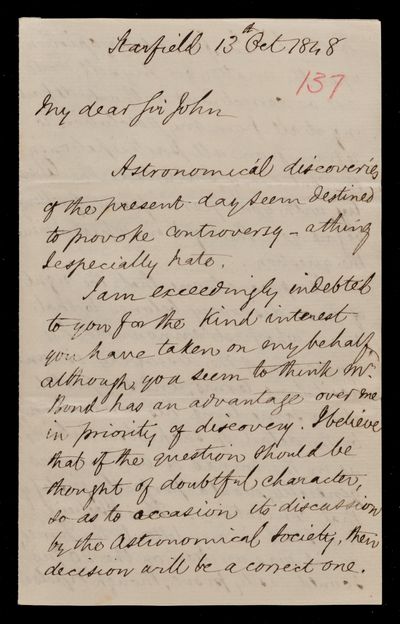 Starfield 13th Oct 1848
137
My dear Sir John
Astronomical discoveries
of the present day seem destined
to provoke controversy - a thing
I especially hate.
I am exceedingly indebted
to you for the kind interest
you have taken on my behalf,
although you seem to think Mr.
Bond has an advantage over me
in priority of discovery. I believe
that if the question should be
thought of doubtful character,
so as to occasion its discussion
by the Astronomical Society, their
decision will be a correct one.